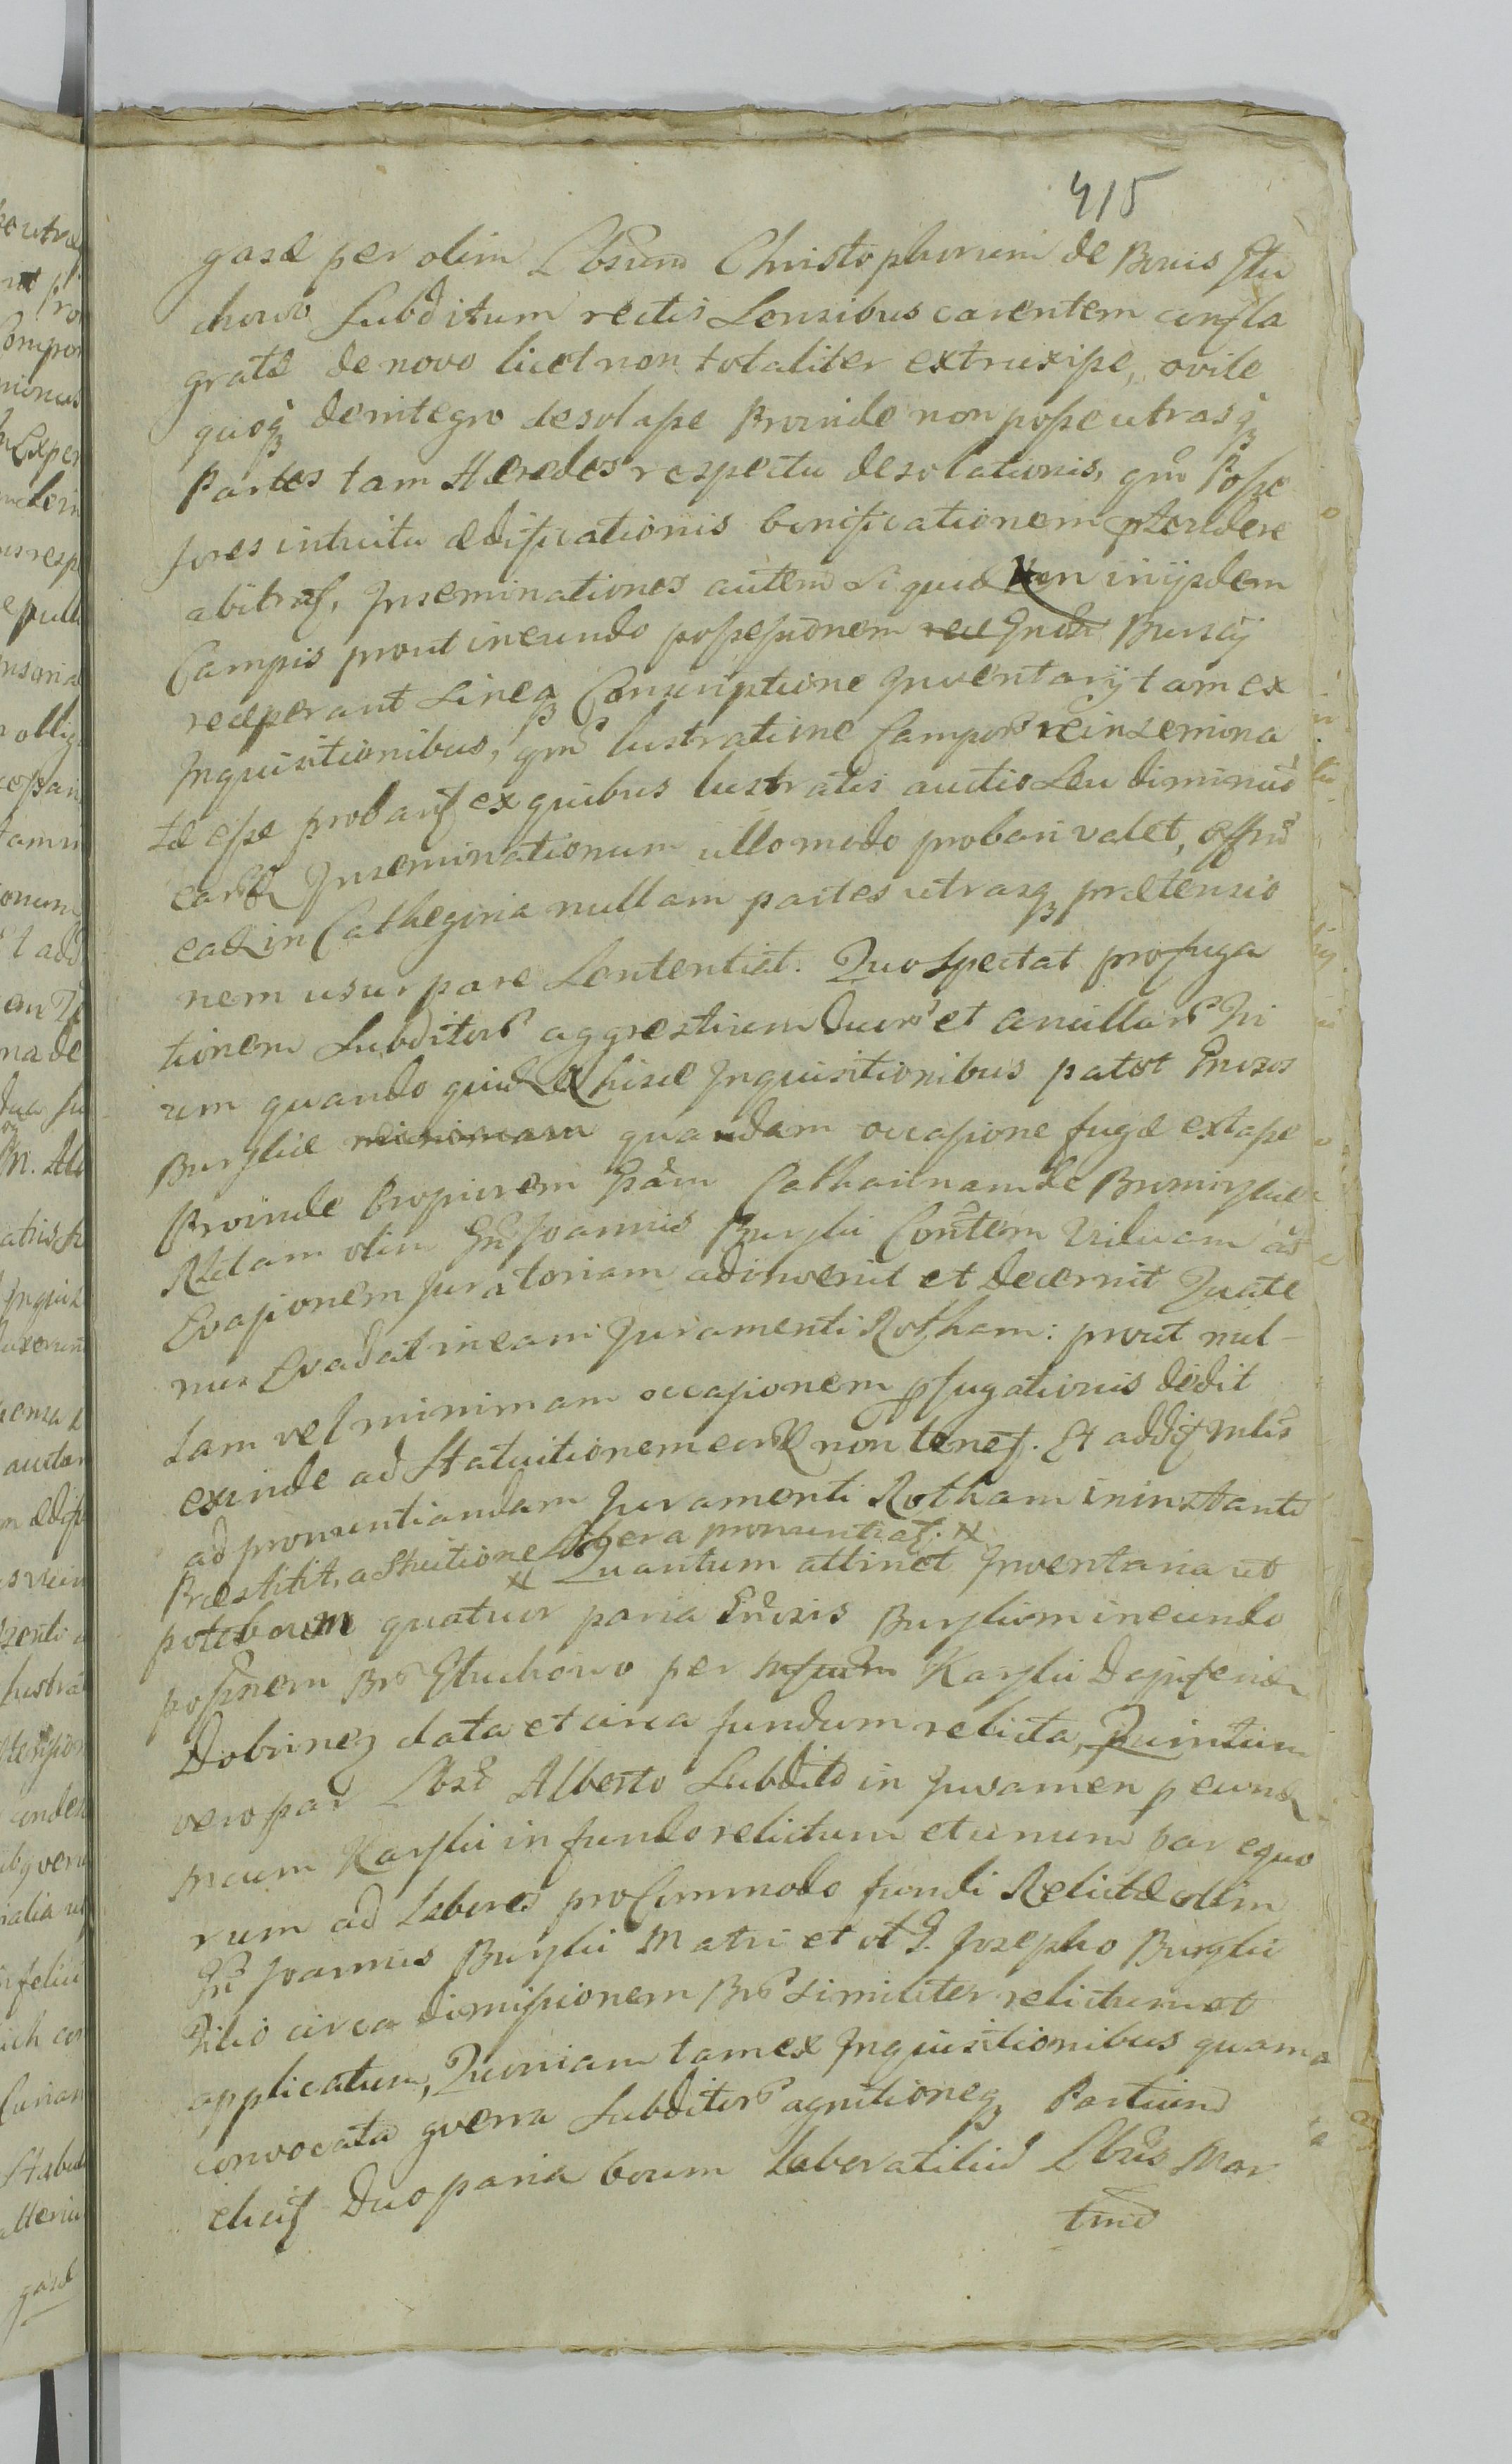 415
gasæ per olim Lbsum Christophorum de Bonis Stu
chowo Subditum rectis Sensibus carentem confla
gratæ de novo licet non totaliter extruxisse, ovile
quoq3 de integro desolasse Proinde non posse utrasq3
Partes tam Hæredes respectu desolationis, qm Posse
sores intuitu ædificationis bonificationem prætendere
abitraʃ, Inseminationes autem siquid in iisdem
Campis prout ineundo possessionem Burscij
receperant sineq3 Conscriptione Inventarij tam ex
Inquisitionibus, qm lustratione Campor reinsemina
tæ esse probanʃ ex quibus lustratis auctio seu diminuo
earū Inseminationum ullo modo probari valet,
ead in Cathegoria nullam partes utrasq3 prætensio
nem usurpare Sententiat. Quo Spectat profuga
tionem Subditor aggrestium Duor et ancillar Tri
um quando quid Ex hisce Inquisitionibus patet Gnosos
Burskie quandam occasione fugæ extasse
Proinde Propiorem Gsam Catharinam de
Rlctam olim Gn Joannis Burski Contem Viduam ad
Evasionem Juratoriam adinvenit et decernit Quate
nus Evadat in eam Juramenti Rotham: prout nul-
lam vel minimam occasionem pfugationis dedit
exinde ad Statuitionem earū non tenetʃ. Et addiʃ mlis
ad pronuntiandam Juramenti Rotham in instanti
Præstitit, a Stuitione Libera pronuntiaʃ. #
# Quantum attinet Inventaria ut
pote boum quatuor paria Gnosis Burskiom ineundo
possnem Br Stuchowo per Karski Dapiferid
Dobrinen data et circa fundum relicta, Quintum
vero par Lbso Alberto Subdito in Juvamen p eund
Mcum Karski in fundo relictum et unum par equo
rum ad labores pro Commodo fundi Relictæ olim
Gn Joannis Burski Matri et G. Josepho Burski
Filio circa dimissionem Br similiter relictum et
applicatum, Quoniam tam ex Inquisitionibus quam a
convocata gverra Subditor agnitioneq3 Partium
eliciʃ Duo paria boum laboratilium Lbris Mar
tino